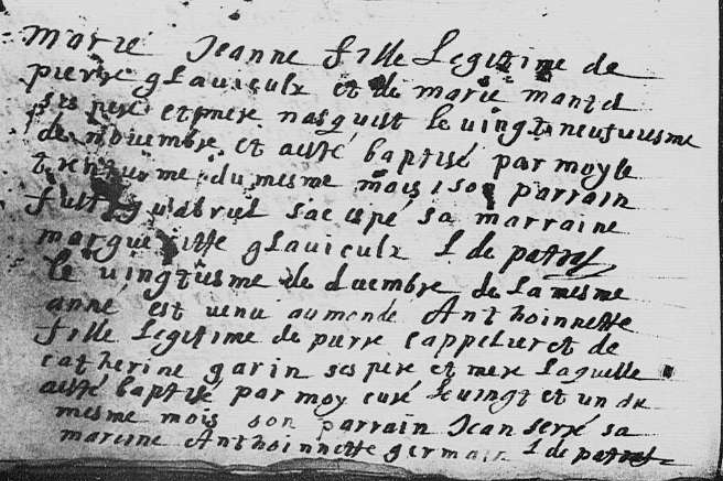 Marie Jeanne fille Legitime de
pierre glauieulx et de marie mantel
ses pere et mere nasquist le uingt neufuiesme
de nouembre et a esté baptisé par moy le
trentiesme du mesme mois son parrain
fust gabriel sa marraine
margueritte glauieulx L de patras
le uingtiesme de decembre de la mesme
anne est uenu au monde Anthoinnette
fille Legitime de pierre cappelier et de
catherine garin ses pere et mere laquelle
a esté baptisé par moy curé le uingt et un du
mesme mois son parrain Jean serré sa
mareine Anthoinnette germain L de patras